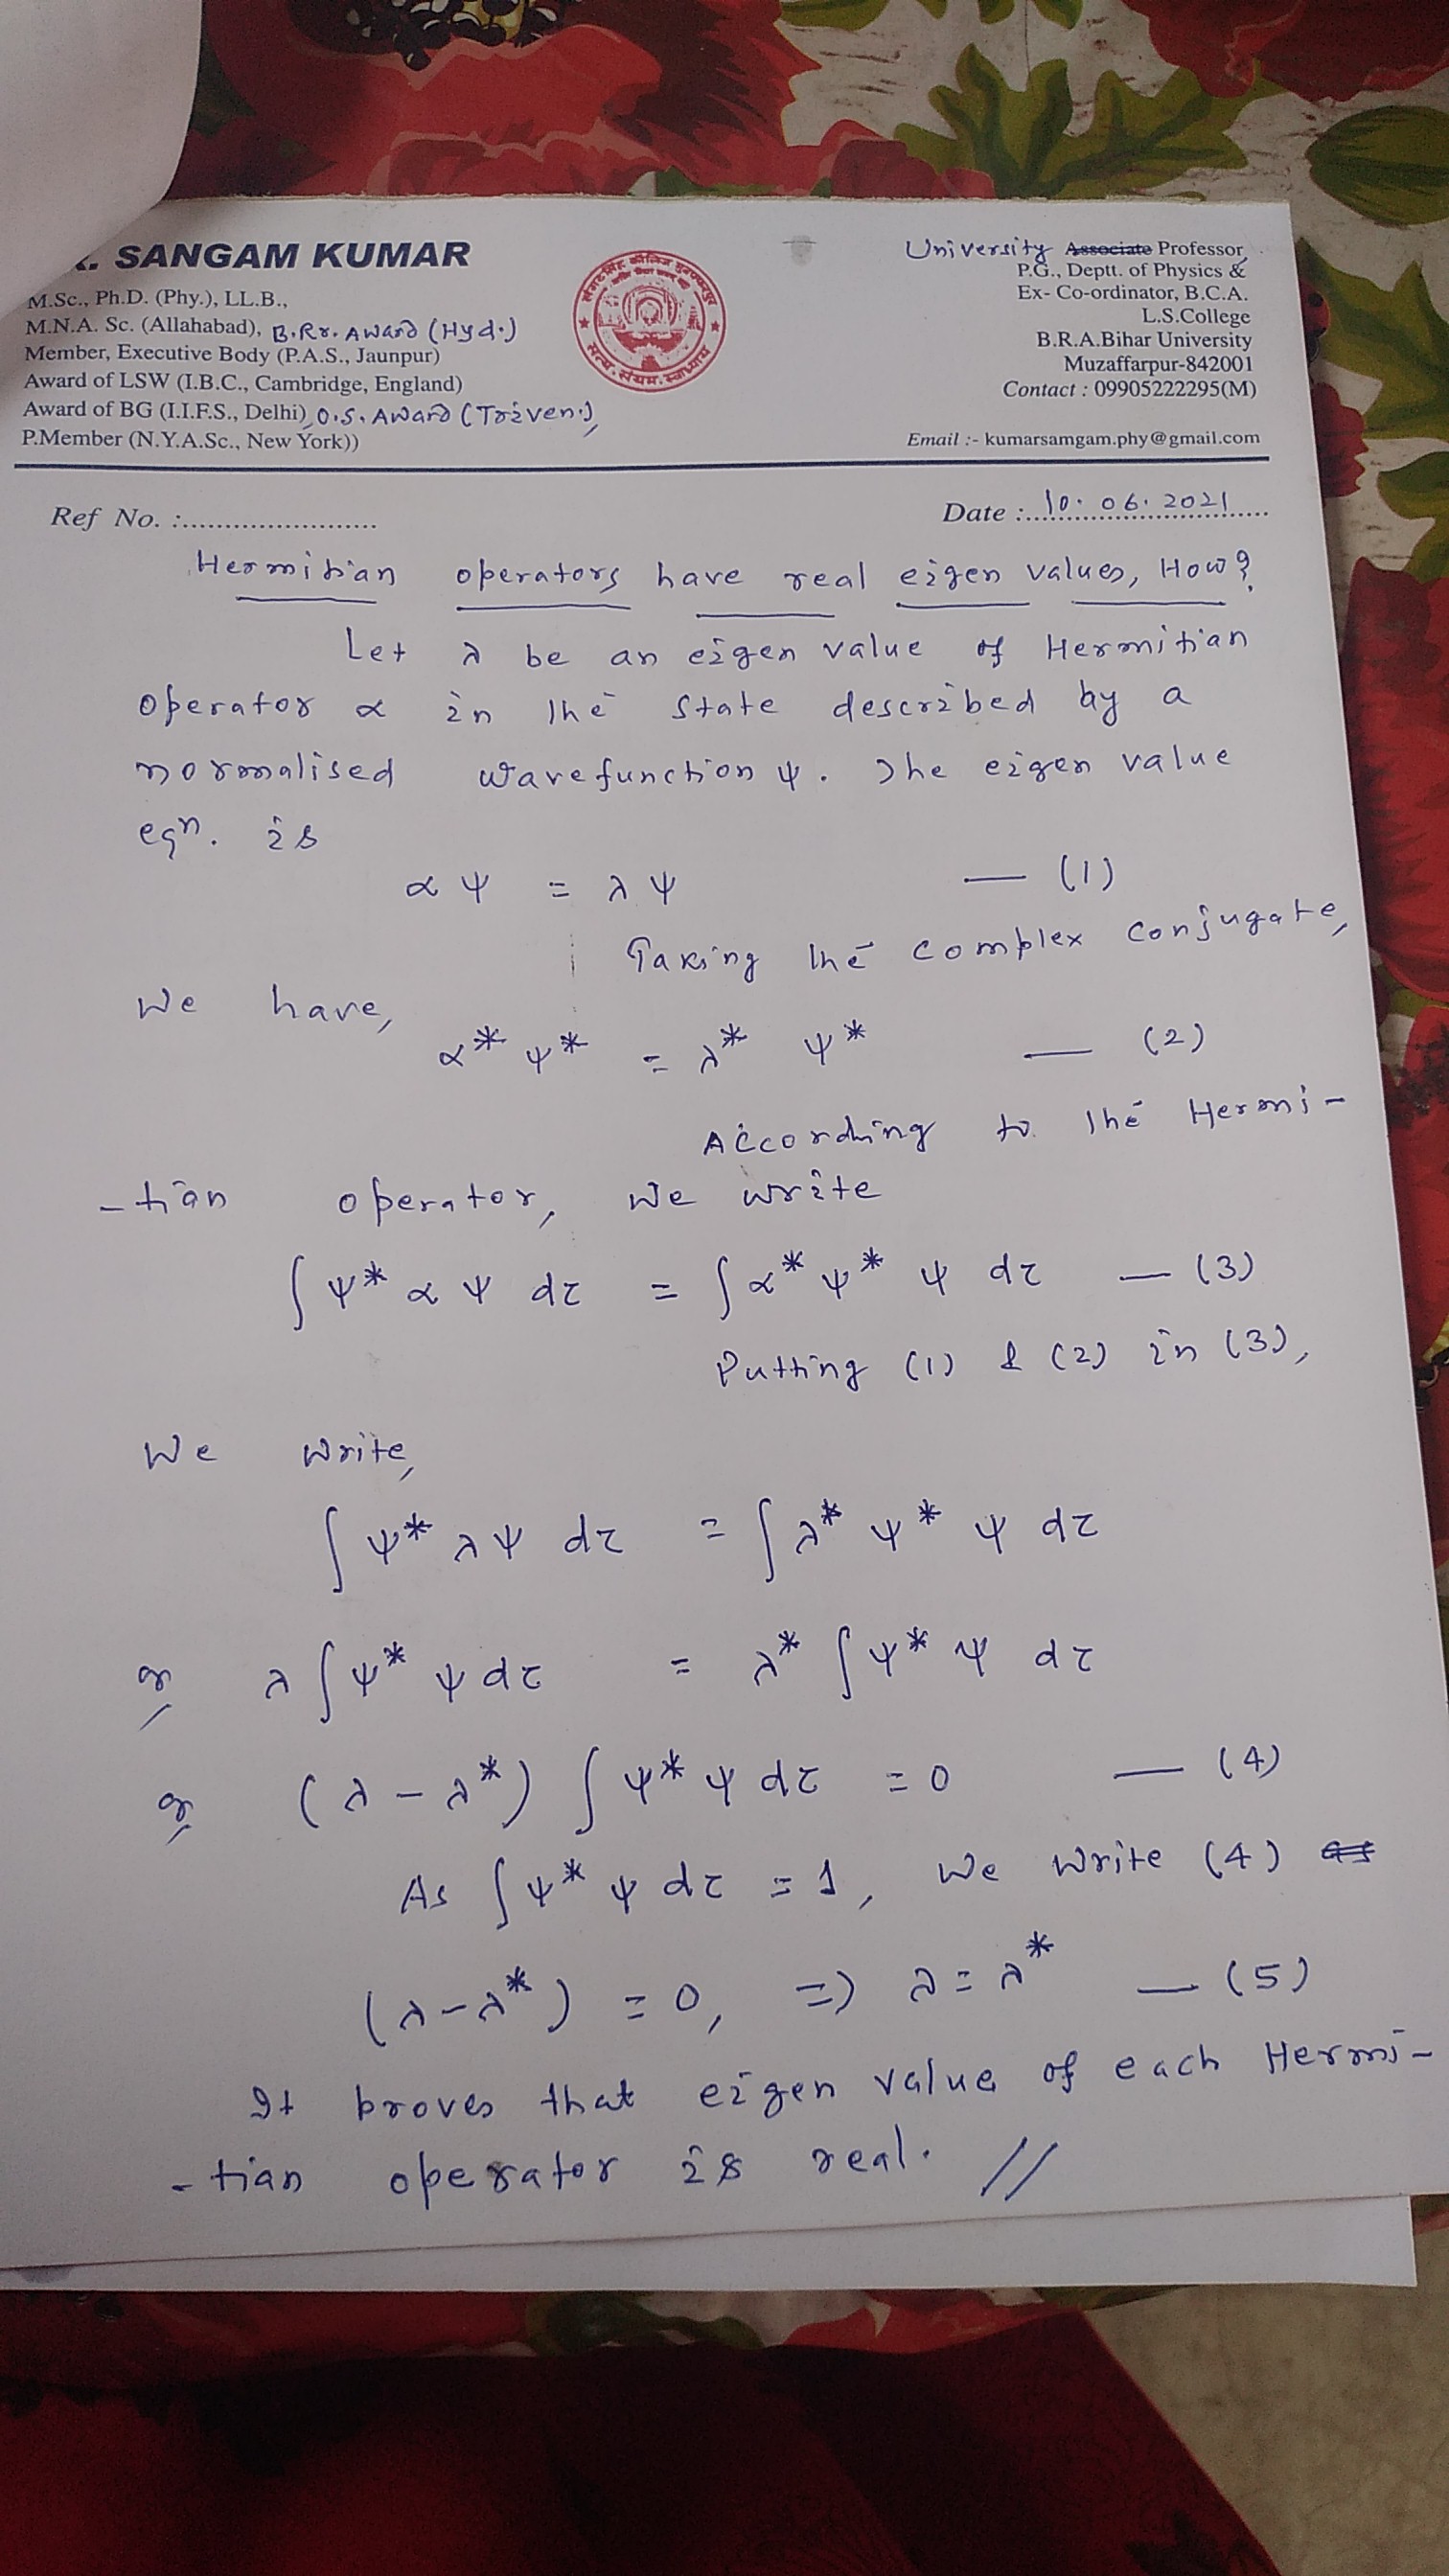 . SANGAM KUMAR
M.Sc., Ph.D. (Phy.), LL.B.,
M.N.A. Sc. (Allahabad), B.Rr. Award (Hyd.)
Member, Executive Body (P.A.S., Jaunpur)
Award of LSW (I.B.C., Cambridge, England)
Award of BG (I.I.F.S., Delhi), O.S. Award (Triven.),
P.Member (N.Y.A.Sc., New York))
University Associate Professor,
P.G., Deptt. of Physics &
Ex- Co-ordinator, B.C.A.
L.S.College
B.R.A.Bihar University
Muzaffarpur-842001
Contact : 09905222295(M)
Email :- kumarsamgam.phy@gmail.com
Ref No. :........................
Date :..10.06.2021......
Hermitian operators have real eigen values, How?
Let λ be an eigen value of Hermitian
operator α in the state described by a
normalised wavefunction ψ. The eigen value
eqn. is
α ψ = λ ψ — (1)
Taking the complex conjugate,
We have,
α* ψ* = λ* ψ* — (2)
According to the Hermi-
-tian operator, we write
∫ ψ* α ψ dτ = ∫ α* ψ* ψ dτ — (3)
Putting (1) & (2) in (3),
We write,
∫ ψ* λ ψ dτ = ∫ λ* ψ* ψ dτ
or λ ∫ ψ* ψ dτ = λ* ∫ ψ* ψ dτ
or (λ - λ*) ∫ ψ* ψ dτ = 0 — (4)
As ∫ ψ* ψ dτ = 1, we write (4) as
(λ - λ*) = 0, => λ = λ* — (5)
It proves that eigen value of each Hermi-
-tian operator is real. //